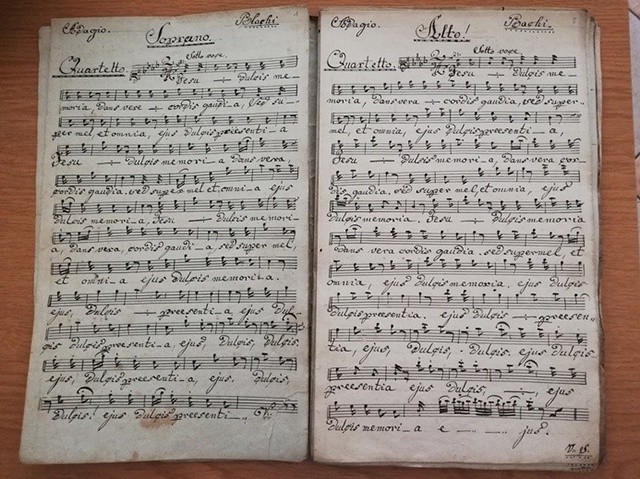 Adagio.
Soprano.
Blachi.
Sotto voce.
Quartetto.
Jesu Dulgis me_
moria, Dans vere cordis gaudi_a, Sed su_
per mel, et omnia, ejus Dulgis presenti_a
Jesu Dulgis memoria Dans vera,
cordis gaudia. sed super mel, et omni_a ejus
Dulgis memori_a, Jesu Dulgis memori_
a, Dans vera, cordis gaudi_a, sed super mel,
et omni_a ejus Dulgis memorita.
ejus, Dulgis preesenti_a, ejus Dul_
gis Dulgis preesenti_a, ejus, Dulgis, Dulgis
ejus, Dulgis preesenti_a, ejus, Dulgis,
Dulgis. ejus Dulgis preesenti_
Adagio.
Alto!
Bachi.
Sotto voce.
Quartetto.
Jesu Dulgis me_
moria, Dans vera cordis gaudia, sed super_
mel, et omnia, ejus Dulgis presenti_a,
Jesu Dulgis memori_a, Dans vera cor_
dis, gaudia, sed super mel, et omnia, ejus
Dulgis memoria. Jesu Dulgis memoria
Dans vera cordis gaudia. sed super mel, et
omnia, ejus Dulgis memoria. ejus Dulgis
Dulgis presentia. ejus Dulgis preesen_
tia, ejus, Dulgis, Dulgis. ejus Dulgis
preesentia ejus Dulgis, ejus
Dulgis memori_a e_ jus.